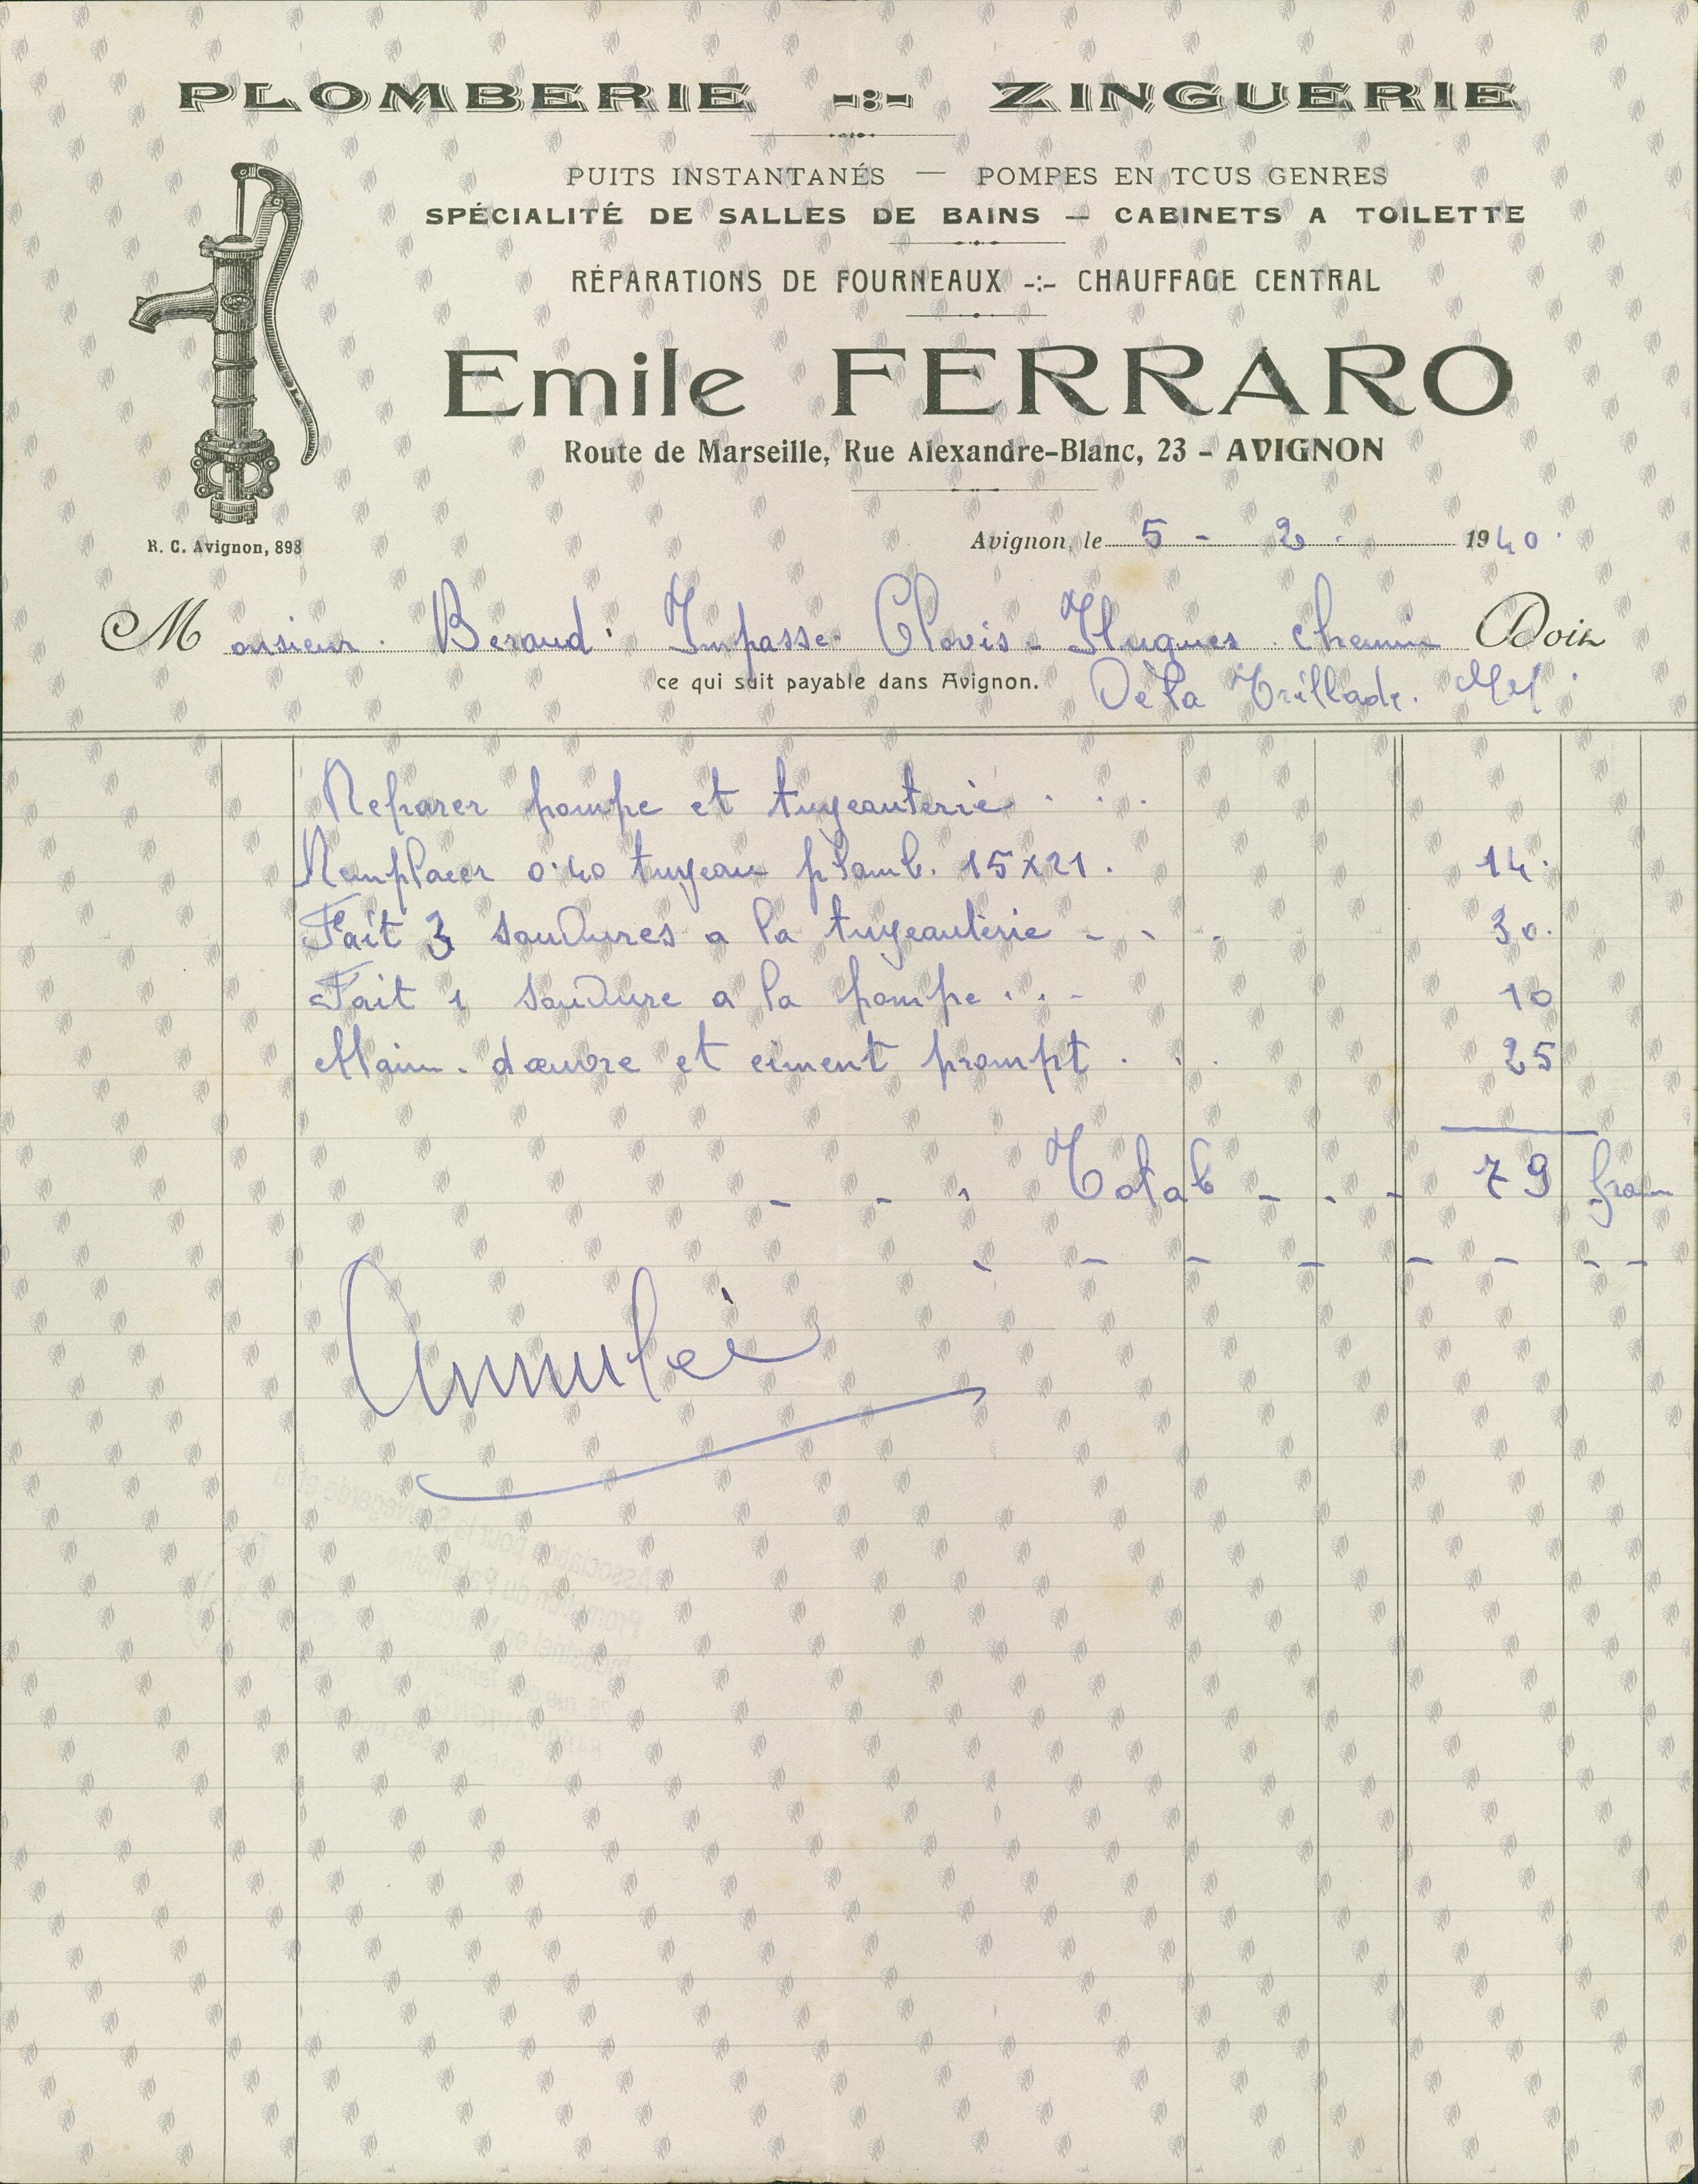 PLOMBERIE -:- ZINGUERIE
PUITS INSTANTANÉS — POMPES EN TOUS GENRES
SPÉCIALITÉ DE SALLES DE BAINS — CABINETS A TOILETTE
RÉPARATIONS DE FOURNEAUX -:- CHAUFFAGE CENTRAL
Emile FERRARO
Route de Marseille, Rue Alexandre-Blanc, 23 - AVIGNON
R. C. Avignon, 898
Avignon, le 5 - 2 - 1940
Monsieur Beraud Impasse Clovis-Hugues chemin Doit
ce qui suit payable dans Avignon. De la Trillade.
Reparer pompe et tuyeauterie . . .
Remplacer 0.40 tuyeau plomb. 15x21. 14.
Fait 3 soudures a la tuyeauterie - - - 30.
Fait 1 soudure a la pompe . . - 10
Main-d'œuvre et ciment prompt . . . 25
- - - Total - - - 79 fran
Annulée
Association pour la Sauvegarde et la
Promotion du Patrimoine
Industriel en Vaucluse